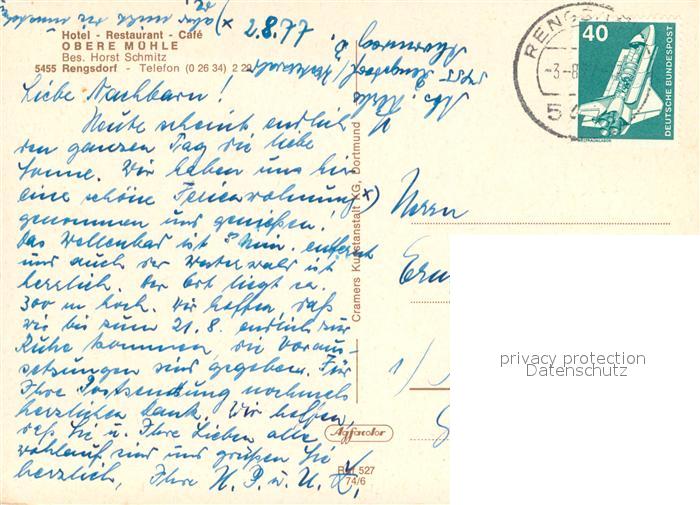 2.8.77
Hotel - Restaurant - Café
OBERE MÜHLE
Bes. Horst Schmitz
5455 Rengsdorf - Telefon (0 26 34) 2 29
Liebe Nachbarn!
Heute scheint endlich
den ganzen Tag die liebe
Sonne. Wir haben uns hier
eine schöne Ferienwohnung x)
genommen und genießen!
Das Wellenbad ist 5 Min. entfernt
und auch der Westerwald ist
herrlich. Der Ort liegt ca.
300 m hoch. Wir hoffen, daß
wir bis zum 21.8. endlich zur
Ruhe kommen, die Voraus-
setzungen sind gegeben. Für
Ihre Postsendung nochmals
herzlichen Dank. Wir hoffen,
daß Sie u. Ihre Lieben alle
wohlauf sind und grüßen Sie
herzlich, Ihre H. P. u. U.
Cramers Kunstanstalt KG, Dortmund
Agfacolor
527
74/6
RENGSD
-3.-8
54
40
DEUTSCHE BUNDESPOST
Herrn
privacy protection
Datenschutz